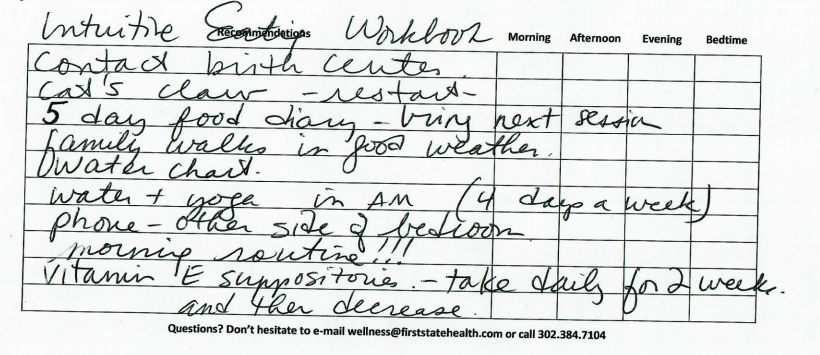 Intuitive Eating Workbook
Recommendations Morning Afternoon Evening Bedtime
Contact birth center.
Cat's claw - restart -
5 day food diary - bring next session
Family walks in good weather.
Water chart.
water + yoga in AM (4 days a week)
phone - other side of bedroom
morning routine!!!
Vitamin E suppositories. - take daily for 2 weeks.
and then decrease.
Questions? Don't hesitate to e-mail wellness@firststatehealth.com or call 302.384.7104